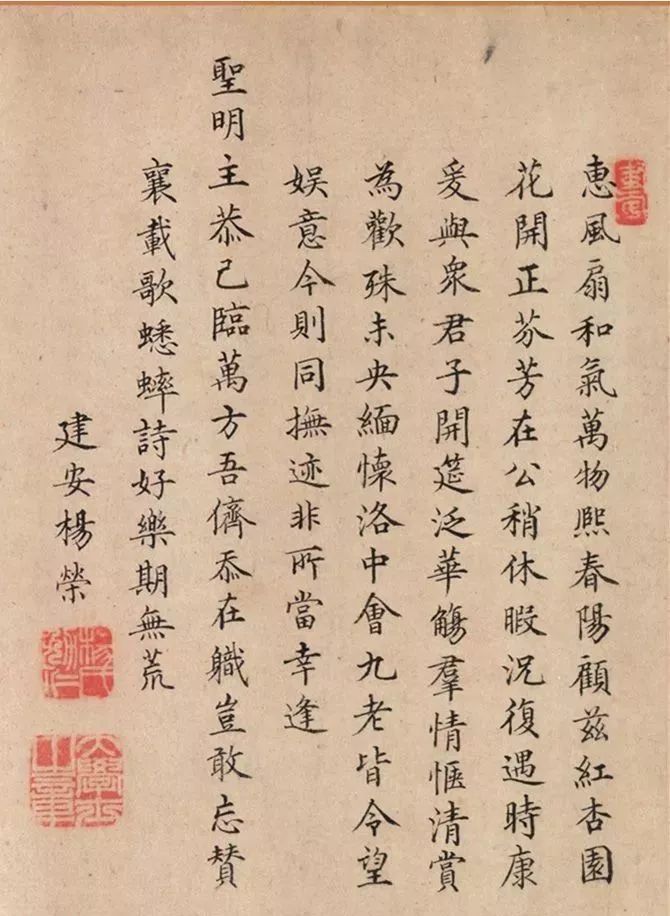 恵風扇和氣萬物熙春陽顧茲紅杏園
花開正芬芳在公稍休暇況復遇時康
爰與衆君子開筵泛華觴羣情愜清賞
為歡殊未央緬懐洛中會九老皆令望
娱意今則同撫迹非所當幸逢
聖明主恭己臨萬方吾儕忝在職豈敢忘賛
襄載歌蟋蟀詩好樂期無荒
建安楊榮
楊氏勉仁